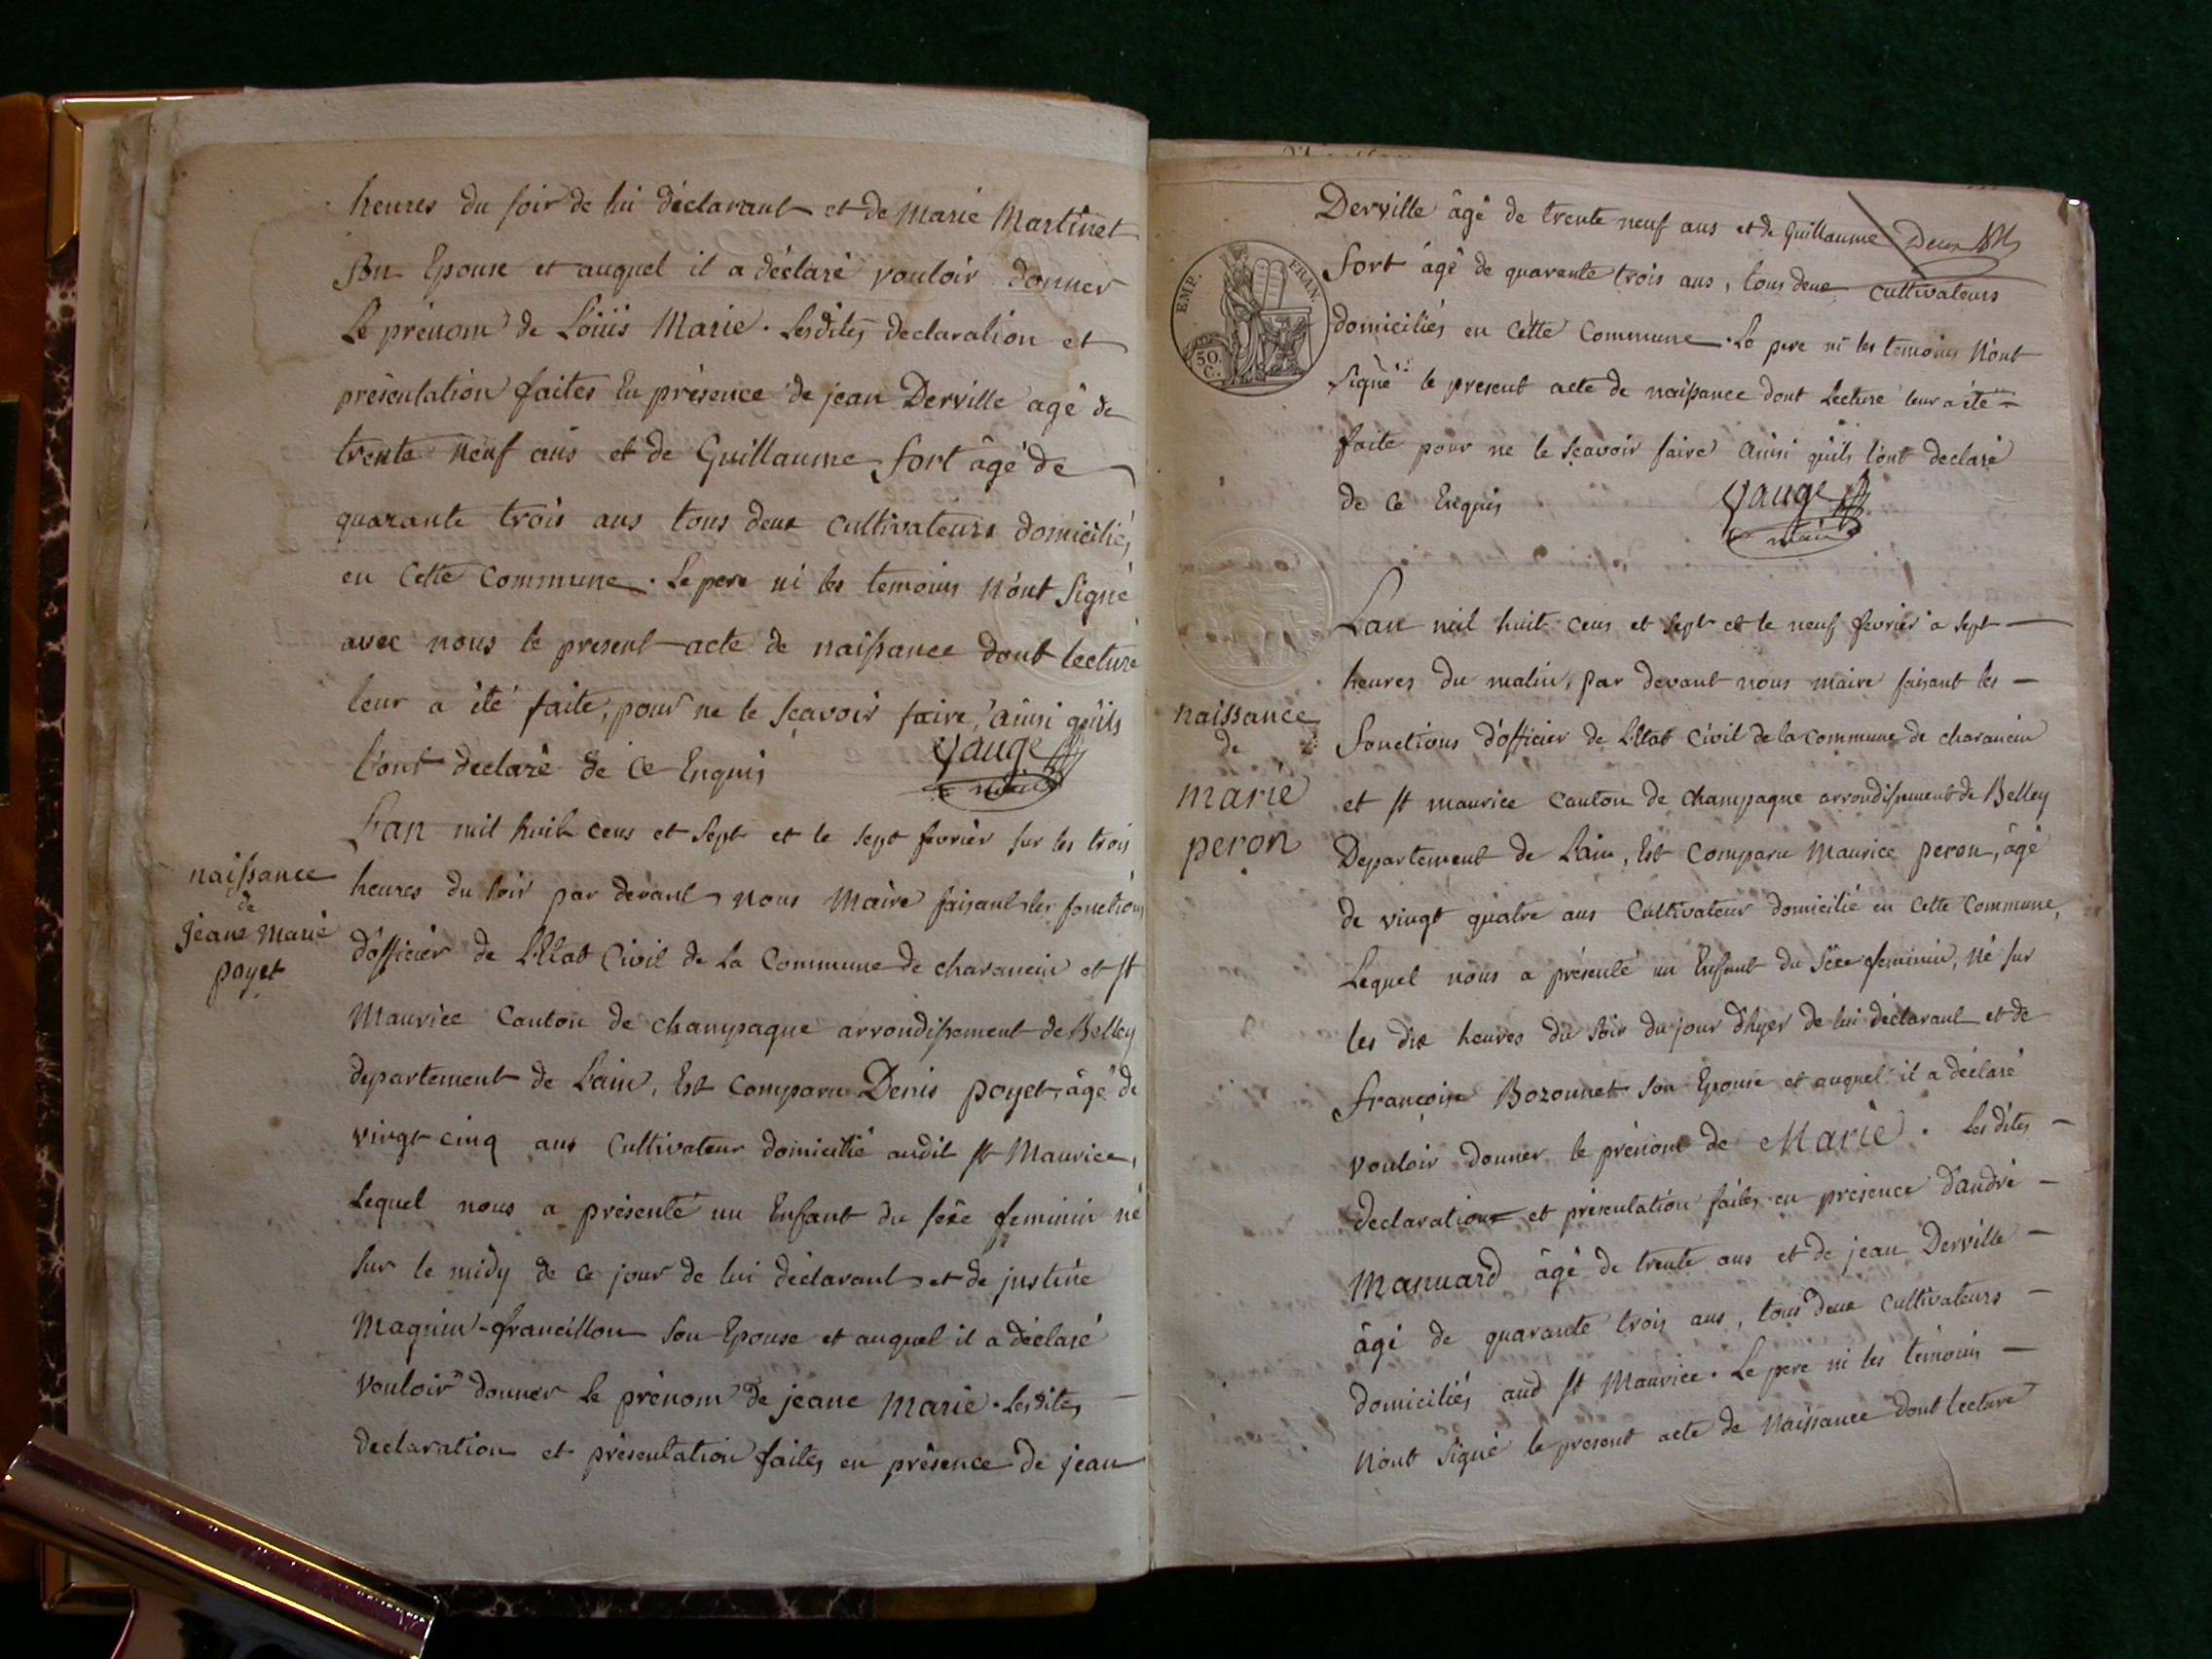 heures du soir de lui déclarant et de Marie Martinet
Son Epouse et auquel il a déclaré vouloir donner
Le prénom de Loüis Marie. Lesdites declaration et
présentation faites En présence de jean Derville agé de
trente neuf ans et de Guillaume fort âgé de
quarante trois ans tous deux cultivateurs domiciliés
en Cette Commune. Le pere ni les temoins N'ont Signé
avec nous le present acte de naissance dont lecture
leur a été faite, pour ne le sçavoir faire, ainsi qu'ils
l'ont declaré de ce Enquis
yauge
maire
L'an mil huit cens et Sept et le sept fevrier sur les trois
naissance
de
Jeane Marie
payet
heures du soir par devant nous Maire faisant les fonctions
d'officier de L'Etat Civil de La Commune de charancin et st
Maurice Canton de champagne arrondissement de Belley
departement de L'ain, Est Comparu Denis payet, âgé de
vingt cinq ans Cultivateur domicilié audit st Maurice,
Lequel nous a présenté un Enfant du sexe feminin né
sur le midy de ce jour de lui déclarant et de justine
Magnin-francillon Son Epouse et auquel il a déclaré
vouloir donner le prénom de jeane Marie. Lesdites
declaration et présentation faites en présence de jean
Derville âgé de trente neuf ans et de Guillaume
fort âgé de quarante trois ans, tous deux cultivateurs
EMP. FRAN.
50.
C.
domiciliés en Cette Commune. Le pere ni les temoins N'ont
Signé le present acte de naissance dont Lecture leur a été
faite pour ne le sçavoir faire ainsi qu'ils l'ont declaré
de ce Enquis
yauge
maire
L'an mil huit cens et Sept et le neuf fevrier a sept
heures du matin, par devant nous maire faisant les
naissance
de
marie
peron
fonctions d'officier de L'Etat Civil de la commune de charancin
et st maurice Canton de champagne arrondissement de Belley
Departement de L'ain, Est Comparu Maurice peron, âgé
de vingt quatre ans Cultivateur domicilié en Cette Commune,
Lequel nous a présenté un Enfant du Sexe feminin, né sur
les dix heures du soir du jour d'hyer de lui déclarant et de
françoise Bozonnet son Epouse et auquel il a déclaré
vouloir donner le prénom de Marie. Lesdites
declarations et présentation faites en présence d'andré
Masnard âgé de trente ans et de jean Derville
âgé de quarante trois ans, tous deux Cultivateurs
domiciliés aud st Maurice. Le pere ni les témoins
N'ont Signé le present acte de Naissance dont lecture